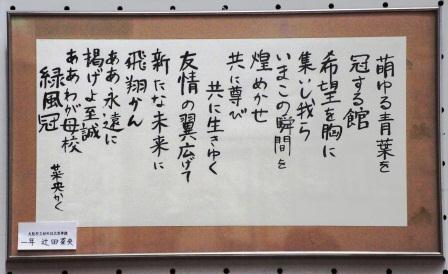 萌ゆる青葉を
冠する館
希望を胸に
集いし我ら
いまこの瞬間を
煌めかせ
共に尊び
共に生きゆく
友情の翼広げて
新たな未来に
飛翔かん
ああ永遠に
掲げよ至誠
ああわが母校
緑風冠
菜央かく
一年 辻田菜央